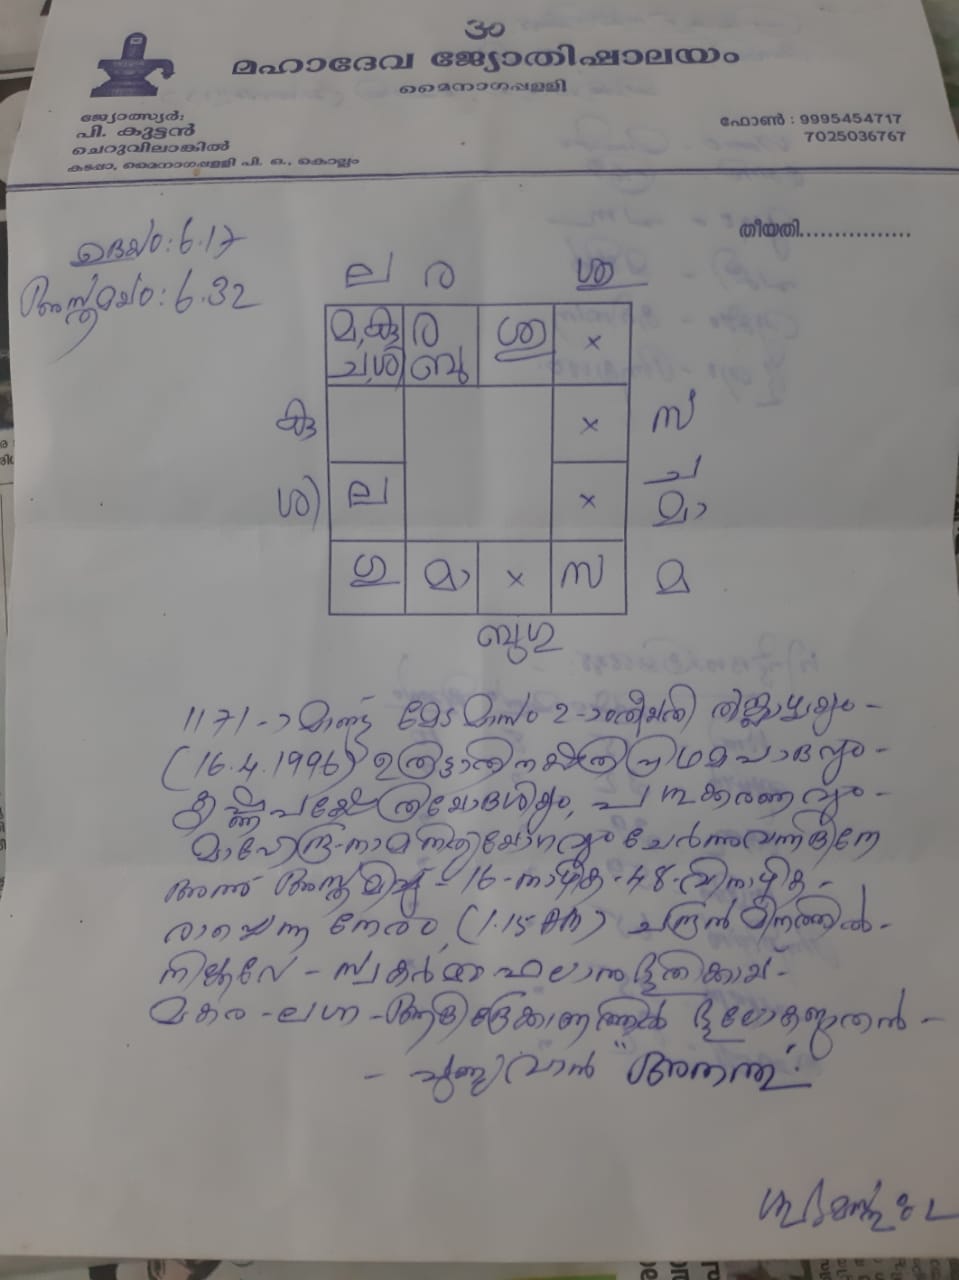 ഓം
മഹാദേവ ജ്യോതിഷാലയം
മൈനാഗപ്പള്ളി
ജ്യോത്സ്യർ:
പി. കുട്ടൻ
ചെറുവിലാങ്കിൽ
കടപ്പാ, മൈനാഗപ്പള്ളി പി. ഒ., കൊല്ലം
ഫോൺ : 9995454717
7025036767
തീയതി................
ഉദയം: 6.17
അസ്തമയം: 6.32
ല ര ശു
മ,കു ര ശു x
ച,ശി ബു
കു x സ
x ച
ശി ല മാ
ഗു മാ x സ മ
ബുഗു
1171-ാമാണ്ട് മേടമാസം 2-ാംതീയതി തിങ്കളാഴ്ചയും -
(16.4.1996) ഉത്രട്ടാതിനക്ഷത്ര പ്രഥമപാദവും -
കൃഷ്ണപക്ഷത്രയോദശിയും, കരണവും -
നിത്യയോഗവും ചേർന്നുവന്നദിനേ
അന്ന് അസ്തമിച്ച് - 16 - നാഴിക - 48 - വിനാഴിക -
രാചെന്ന നേരം, (1.15 AM) ചന്ദ്രൻ മീനത്തിൽ -
നില്ക്കവേ - സ്വകർമ്മഫലാനുഭൂതിക്കായ് -
മകര - ലഗ്ന - ആദിദ്രേക്കാണത്തിൽ ഭൂലോകജാതൻ -
- പുണ്യവാൻ "അനന്തു".